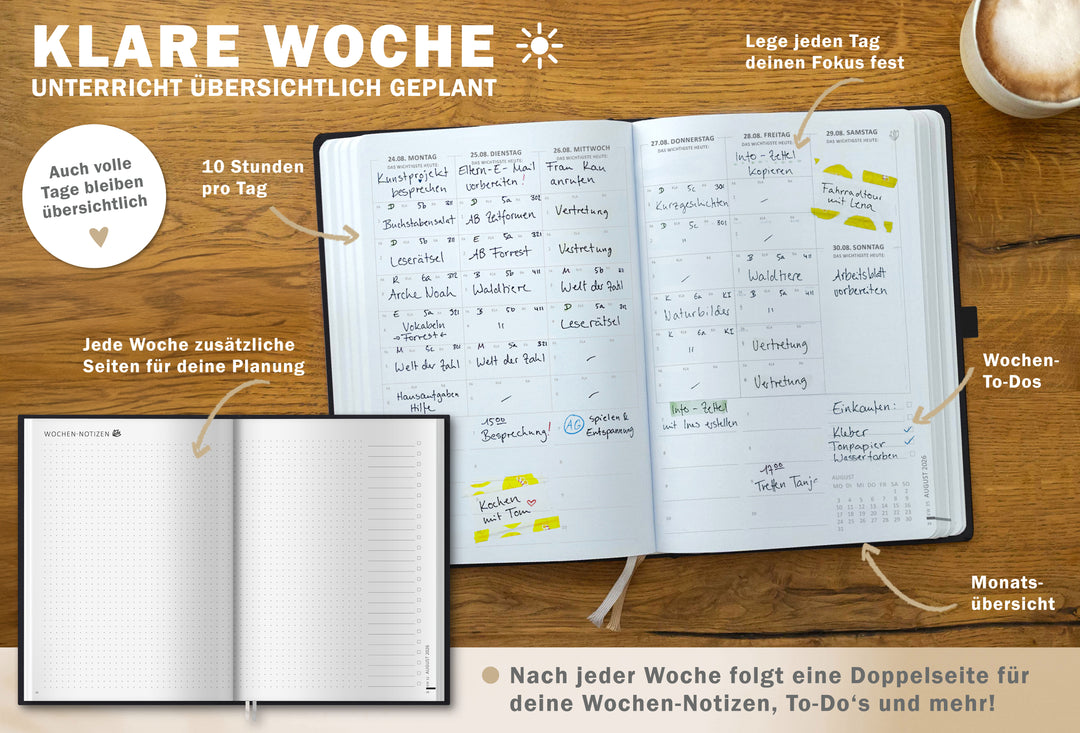 KLARE WOCHE
UNTERRICHT ÜBERSICHTLICH GEPLANT
Auch volle
Tage bleiben
übersichtlich
10 Stunden
pro Tag
Lege jeden Tag
deinen Fokus fest
24.08. MONTAG
DAS WICHTIGSTE HEUTE:
Kunstprojekt
besprechen
D 5b 311
Buchstabensalat
D 5b 311
Leserätsel
R 6a 312
Arche Noah
E 5a 301
Vokabeln
→Forrest←
M 5c 301
Welt der Zahl
Hausaufgaben
Hilfe
25.08. DIENSTAG
DAS WICHTIGSTE HEUTE:
Eltern-E-Mail
vorbereiten!
D 5a 301
AB Zeitformen
E 5a 301
AB Forrest
B 5b 411
Waldtiere
B 5b 411
"
M 5b 301
Welt der Zahl
15:00
Besprechung!
Kochen
mit Tom
26.08. MITTWOCH
DAS WICHTIGSTE HEUTE:
Frau Rau
anrufen
Vertretung
Vertretung
M 5b 311
Welt der Zahl
D 5a 311
Leserätsel
AG spielen &
Entspannung
27.08. DONNERSTAG
DAS WICHTIGSTE HEUTE:
D 5c 301
Kurzgeschichten
D 5c 301
"
K 6a K1
Naturbilder
K 6a K1
"
Info-Zettel
mit Ines erstellen
28.08. FREITAG
DAS WICHTIGSTE HEUTE:
Info-Zettel
Kopieren
B 5a 411
Waldtiere
B 5a 411
"
Vertretung
Vertretung
17:00
Treffen Tanja
29.08. SAMSTAG
DAS WICHTIGSTE HEUTE:
Fahrradtour
mit Lena
30.08. SONNTAG
DAS WICHTIGSTE HEUTE:
Arbeitsblatt
vorbereiten
Einkaufen:
Kleber
Tonpapier
Wasserfarben
AUGUST
MO DI MI DO FR SA SO
1 2
3 4 5 6 7 8 9
10 11 12 13 14 15 16
17 18 19 20 21 22 23
24 25 26 27 28 29 30
31
KW 35 AUGUST 2026
Jede Woche zusätzliche
Seiten für deine Planung
WOCHEN-NOTIZEN
AUGUST 2026
Wochen-
To-Dos
Monats-
übersicht
Nach jeder Woche folgt eine Doppelseite für
deine Wochen-Notizen, To-Do's und mehr!